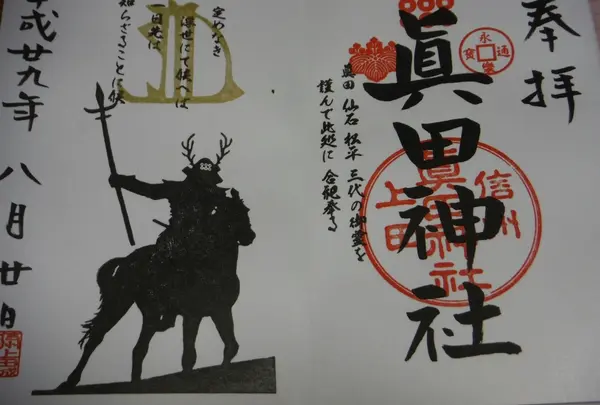 奉拝
眞田神社
信州
上田
眞田神社
永
通
寳
眞田 仙石 松平 三代の御霊を
謹んで此処に 念観奉る
定めなき
浮世にて候へば
一日先は
知らざることに候
平成廿九年 八月廿日